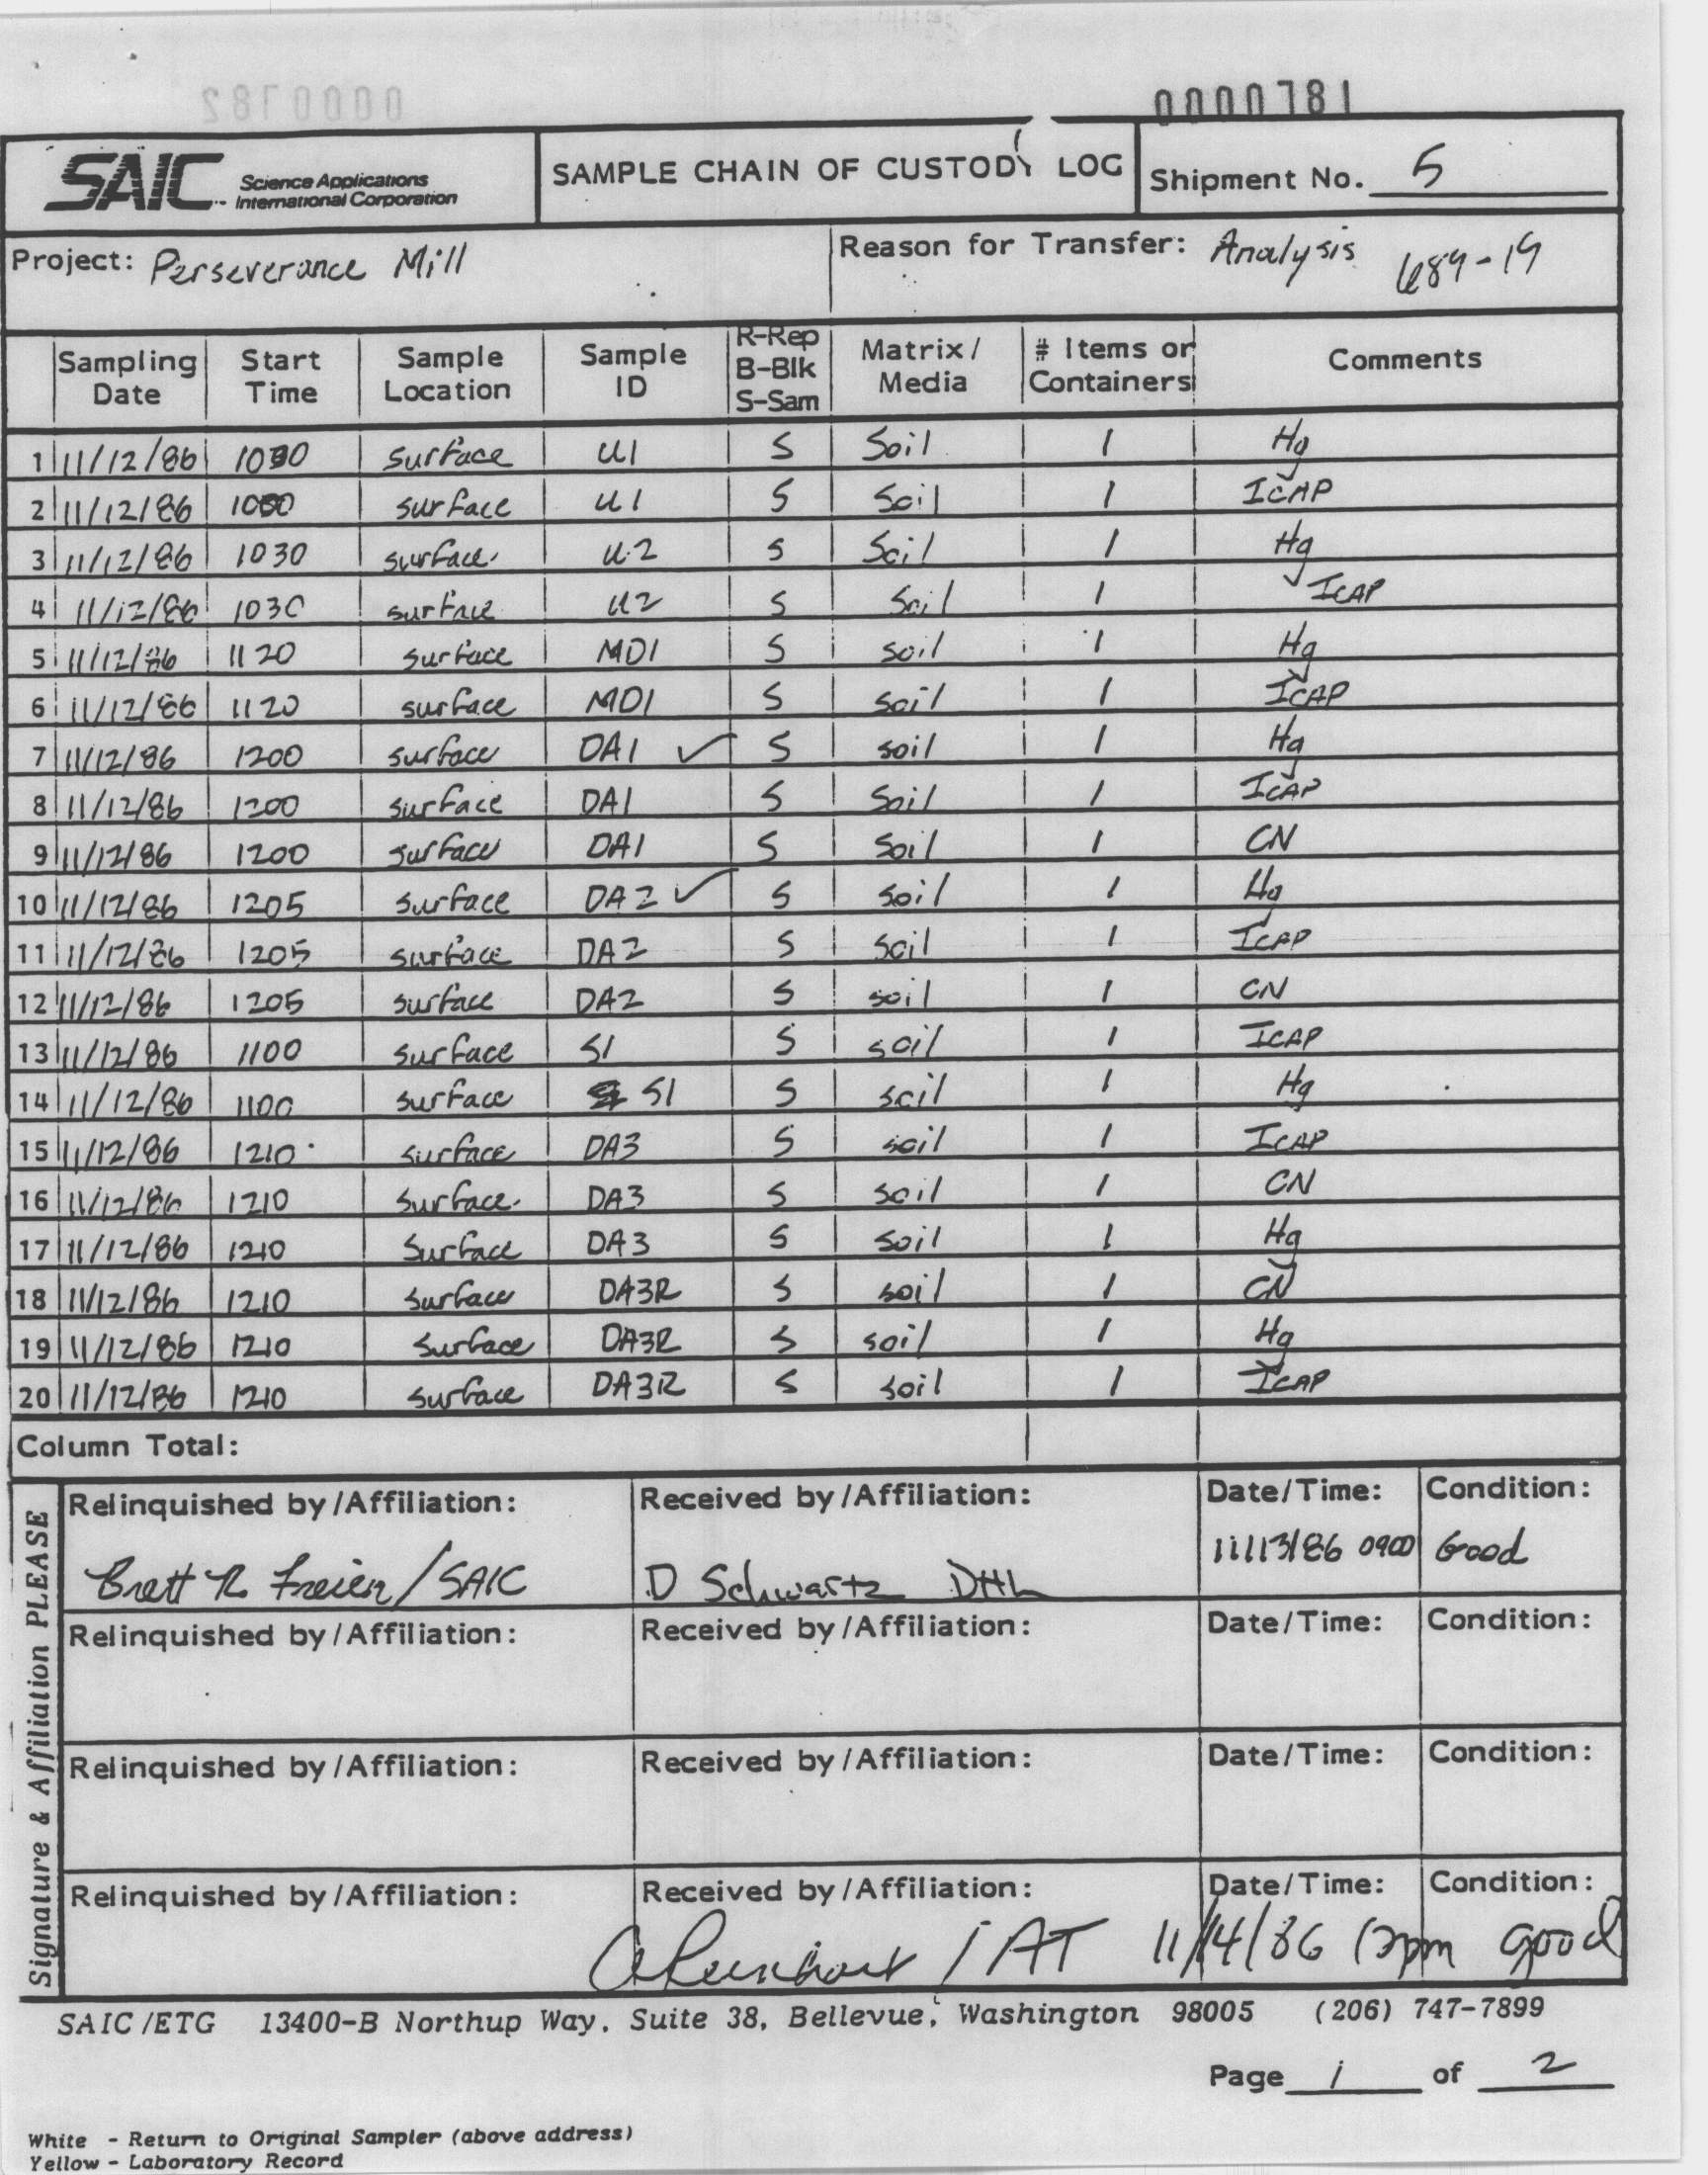 0000781
SAIC Science Applications International Corporation
SAMPLE CHAIN OF CUSTODY LOG
Shipment No. 5
Project: Perseverance Mill
Reason for Transfer: Analysis 689-19
Sampling Date | Start Time | Sample Location | Sample ID | R-Rep B-Blk S-Sam | Matrix/Media | # Items or Containers | Comments
1 11/12/86 surface U1 S Soil 1 Hg
2 11/12/86 surface U1 S Soil 1 ICAP
3 11/12/86 1030 surface U2 S Soil 1 Hg
4 11/12/86 1030 surface U2 S Soil 1 ICAP
5 11/12/86 1120 surface MD1 S soil 1 Hg
6 11/12/86 1120 surface MD1 S soil 1 ICAP
7 11/12/86 1200 surface DA1 ✓ S soil 1 Hg
8 11/12/86 1200 surface DA1 S Soil 1 ICAP
9 11/12/86 1200 surface DA1 S Soil 1 CN
10 11/12/86 1205 surface DA2 ✓ S soil 1 Hg
11 11/12/86 1205 surface DA2 S soil 1 ICAP
12 11/12/86 1205 surface DA2 S soil 1 CN
13 11/12/86 1100 surface S1 S soil 1 ICAP
14 11/12/86 1100 surface S1 S soil 1 Hg
15 11/12/86 1210 surface DA3 S soil 1 ICAP
16 11/12/86 1210 surface DA3 S soil 1 CN
17 11/12/86 1210 surface DA3 S soil 1 Hg
18 11/12/86 1210 surface DA3R S soil 1 CN
19 11/12/86 1210 surface DA3R S soil 1 Hg
20 11/12/86 1210 surface DA3R S soil 1 ICAP
Column Total:
Signature & Affiliation PLEASE
Relinquished by/Affiliation: Received by/Affiliation: Date/Time: Condition:
Brett R Freier/SAIC D Schwartz DHL 11/13/86 0900 Good
Relinquished by/Affiliation: Received by/Affiliation: Date/Time: Condition:
Relinquished by/Affiliation: Received by/Affiliation: Date/Time: Condition:
Relinquished by/Affiliation: Received by/Affiliation: Date/Time: Condition:
/ AT 11/14/86 good
SAIC/ETG 13400-B Northup Way, Suite 38, Bellevue, Washington 98005 (206) 747-7899
Page 1 of 2
White - Return to Original Sampler (above address)
Yellow - Laboratory Record